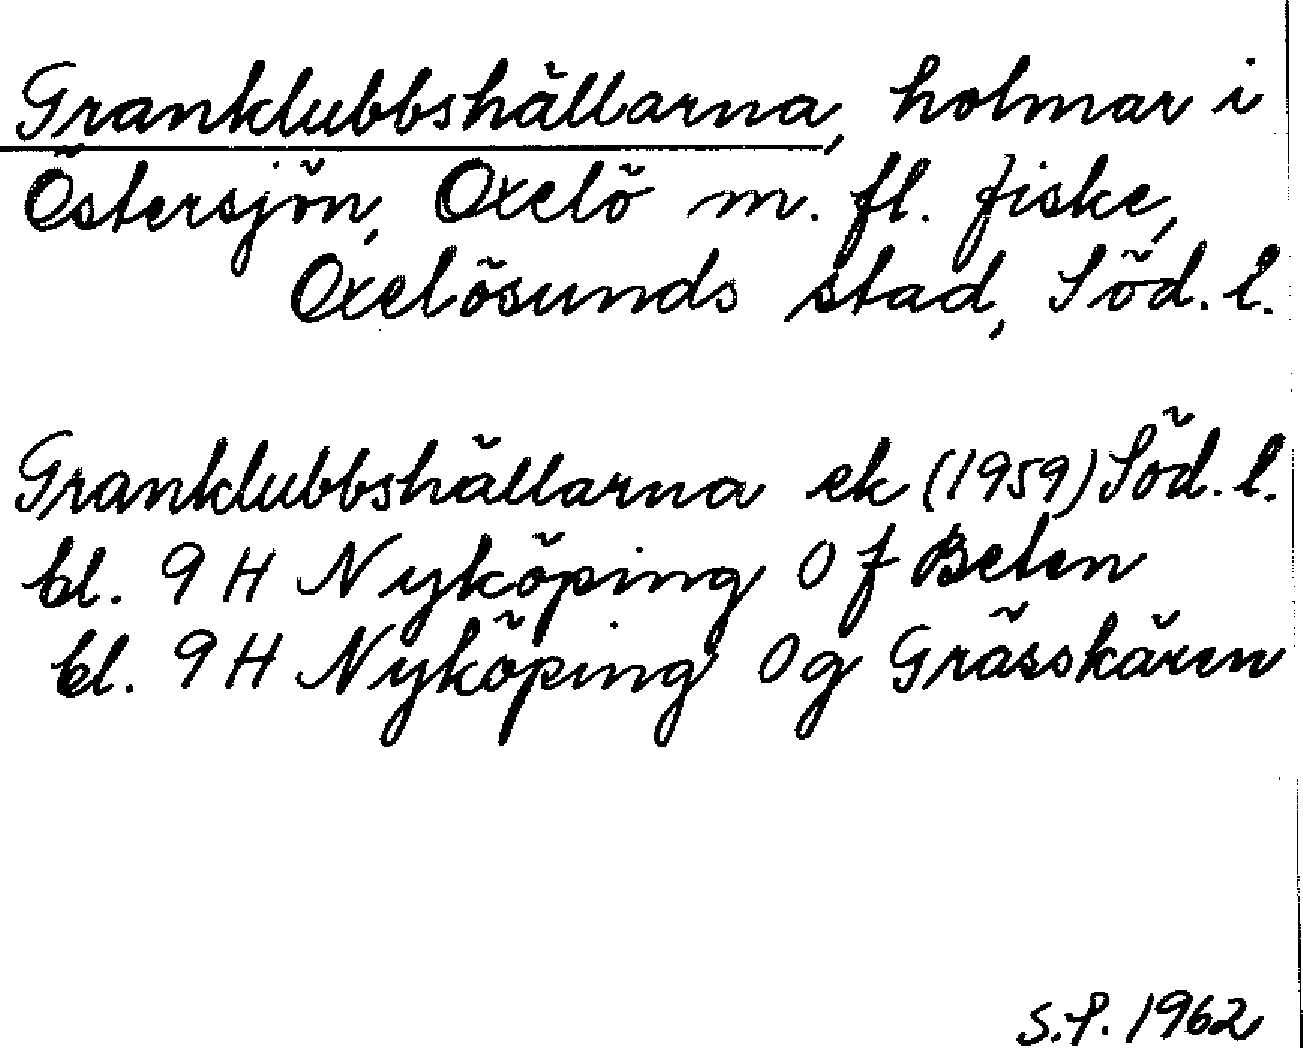 Granklubbshällarna, holmar i
Östersjön, Oxelö m. fl. fiske,
Oxelösunds stad, Söd. l.
Granklubbshällarna ek (1959) Söd. l.
bl. 9 H Nyköping 0 f Beten
bl. 9 H Nyköping 0 g Grässkären
S.P. 1962